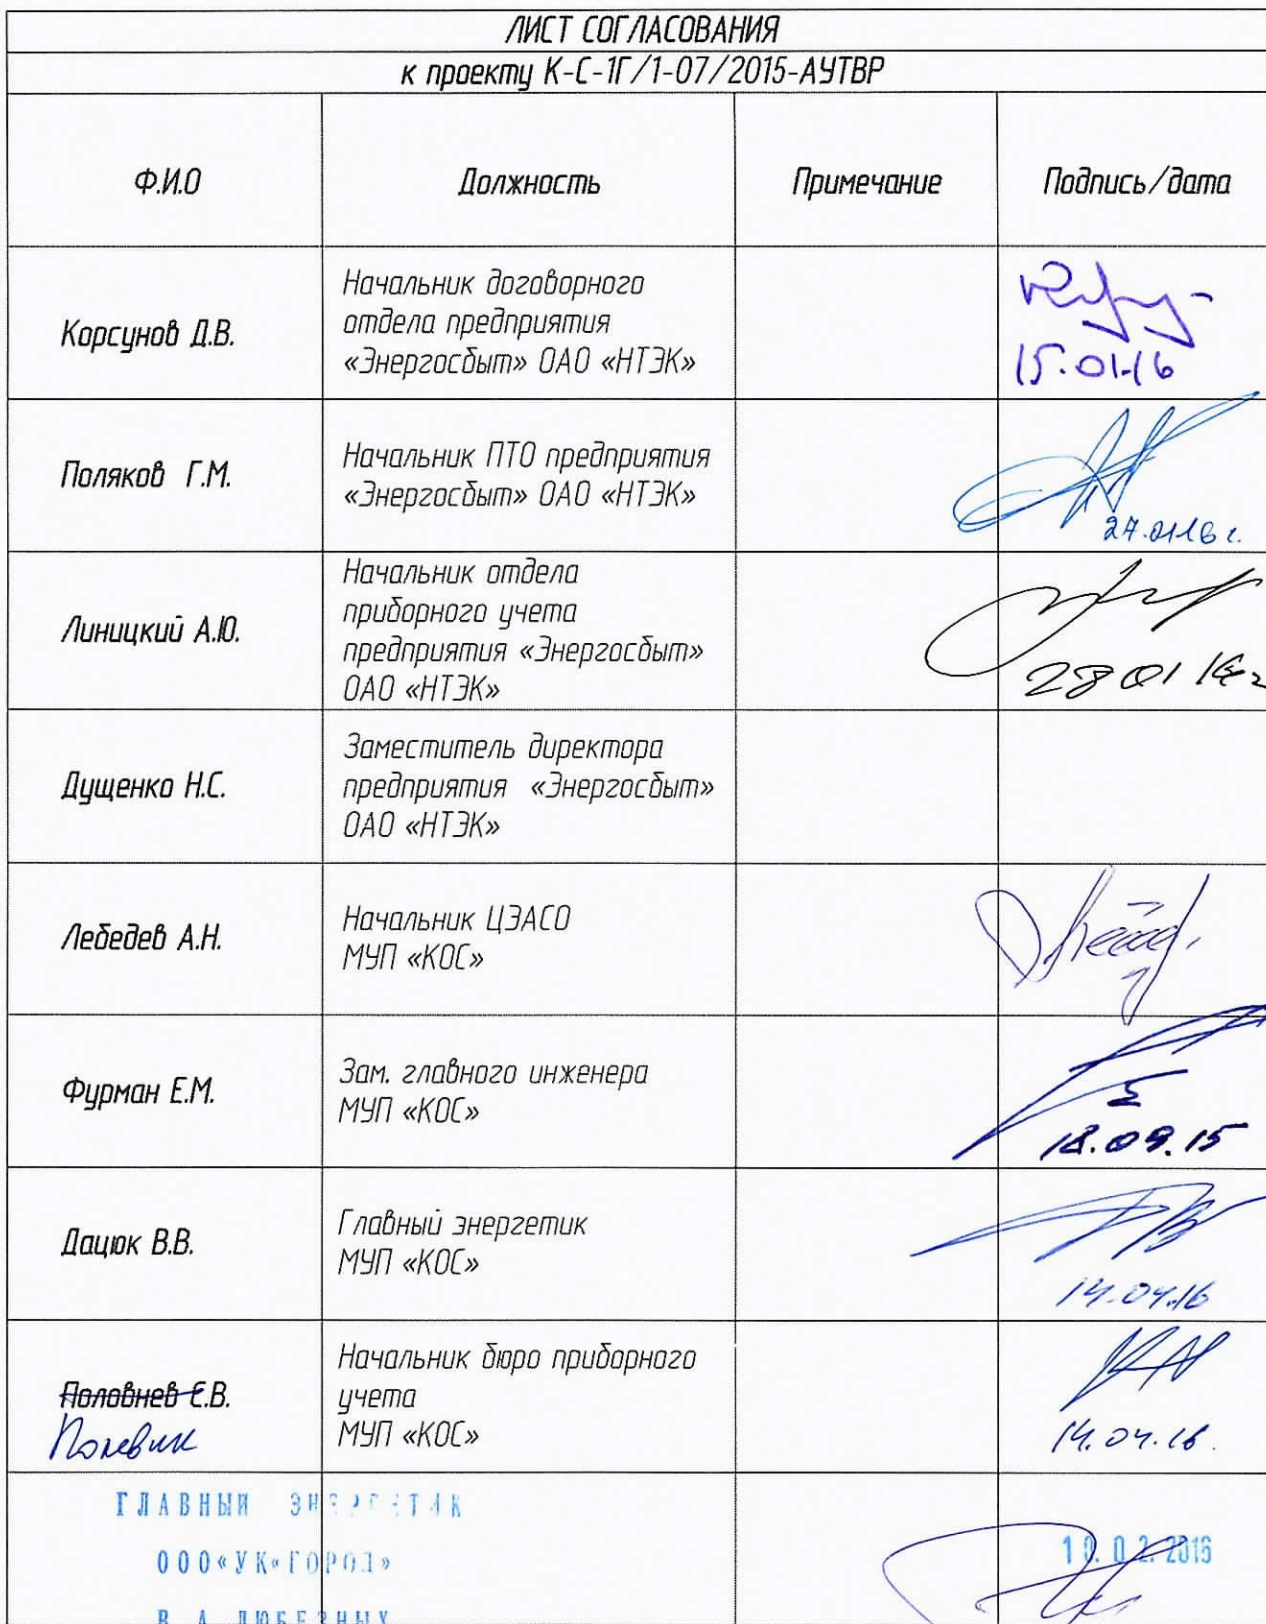 ЛИСТ СОГЛАСОВАНИЯ
к проекту К-С-1Г/1-07/2015-АУТВР
Ф.И.О
Должность
Примечание
Подпись/дата
Корсунов Д.В.
Начальник договорного
отдела предприятия
«Энергосбыт» ОАО «НТЭК»
15.01.16
Поляков Г.М.
Начальник ПТО предприятия
«Энергосбыт» ОАО «НТЭК»
27.01.16 г.
Линицкий А.Ю.
Начальник отдела
приборного учета
предприятия «Энергосбыт»
ОАО «НТЭК»
28 01 16г
Дущенко Н.С.
Заместитель директора
предприятия «Энергосбыт»
ОАО «НТЭК»
Лебедев А.Н.
Начальник ЦЭАСО
МУП «КОС»
Фурман Е.М.
Зам. главного инженера
МУП «КОС»
18.09.15
Дацюк В.В.
Главный энергетик
МУП «КОС»
14.04.16
Половнев Е.В.
Полевик
Начальник бюро приборного
учета
МУП «КОС»
14.04.16.
ГЛАВНЫЙ ЭНЕРГЕТИК
ООО«УК«ГОРОД»
В.А.ЛЮБЕЗНЫХ
10.02.2016